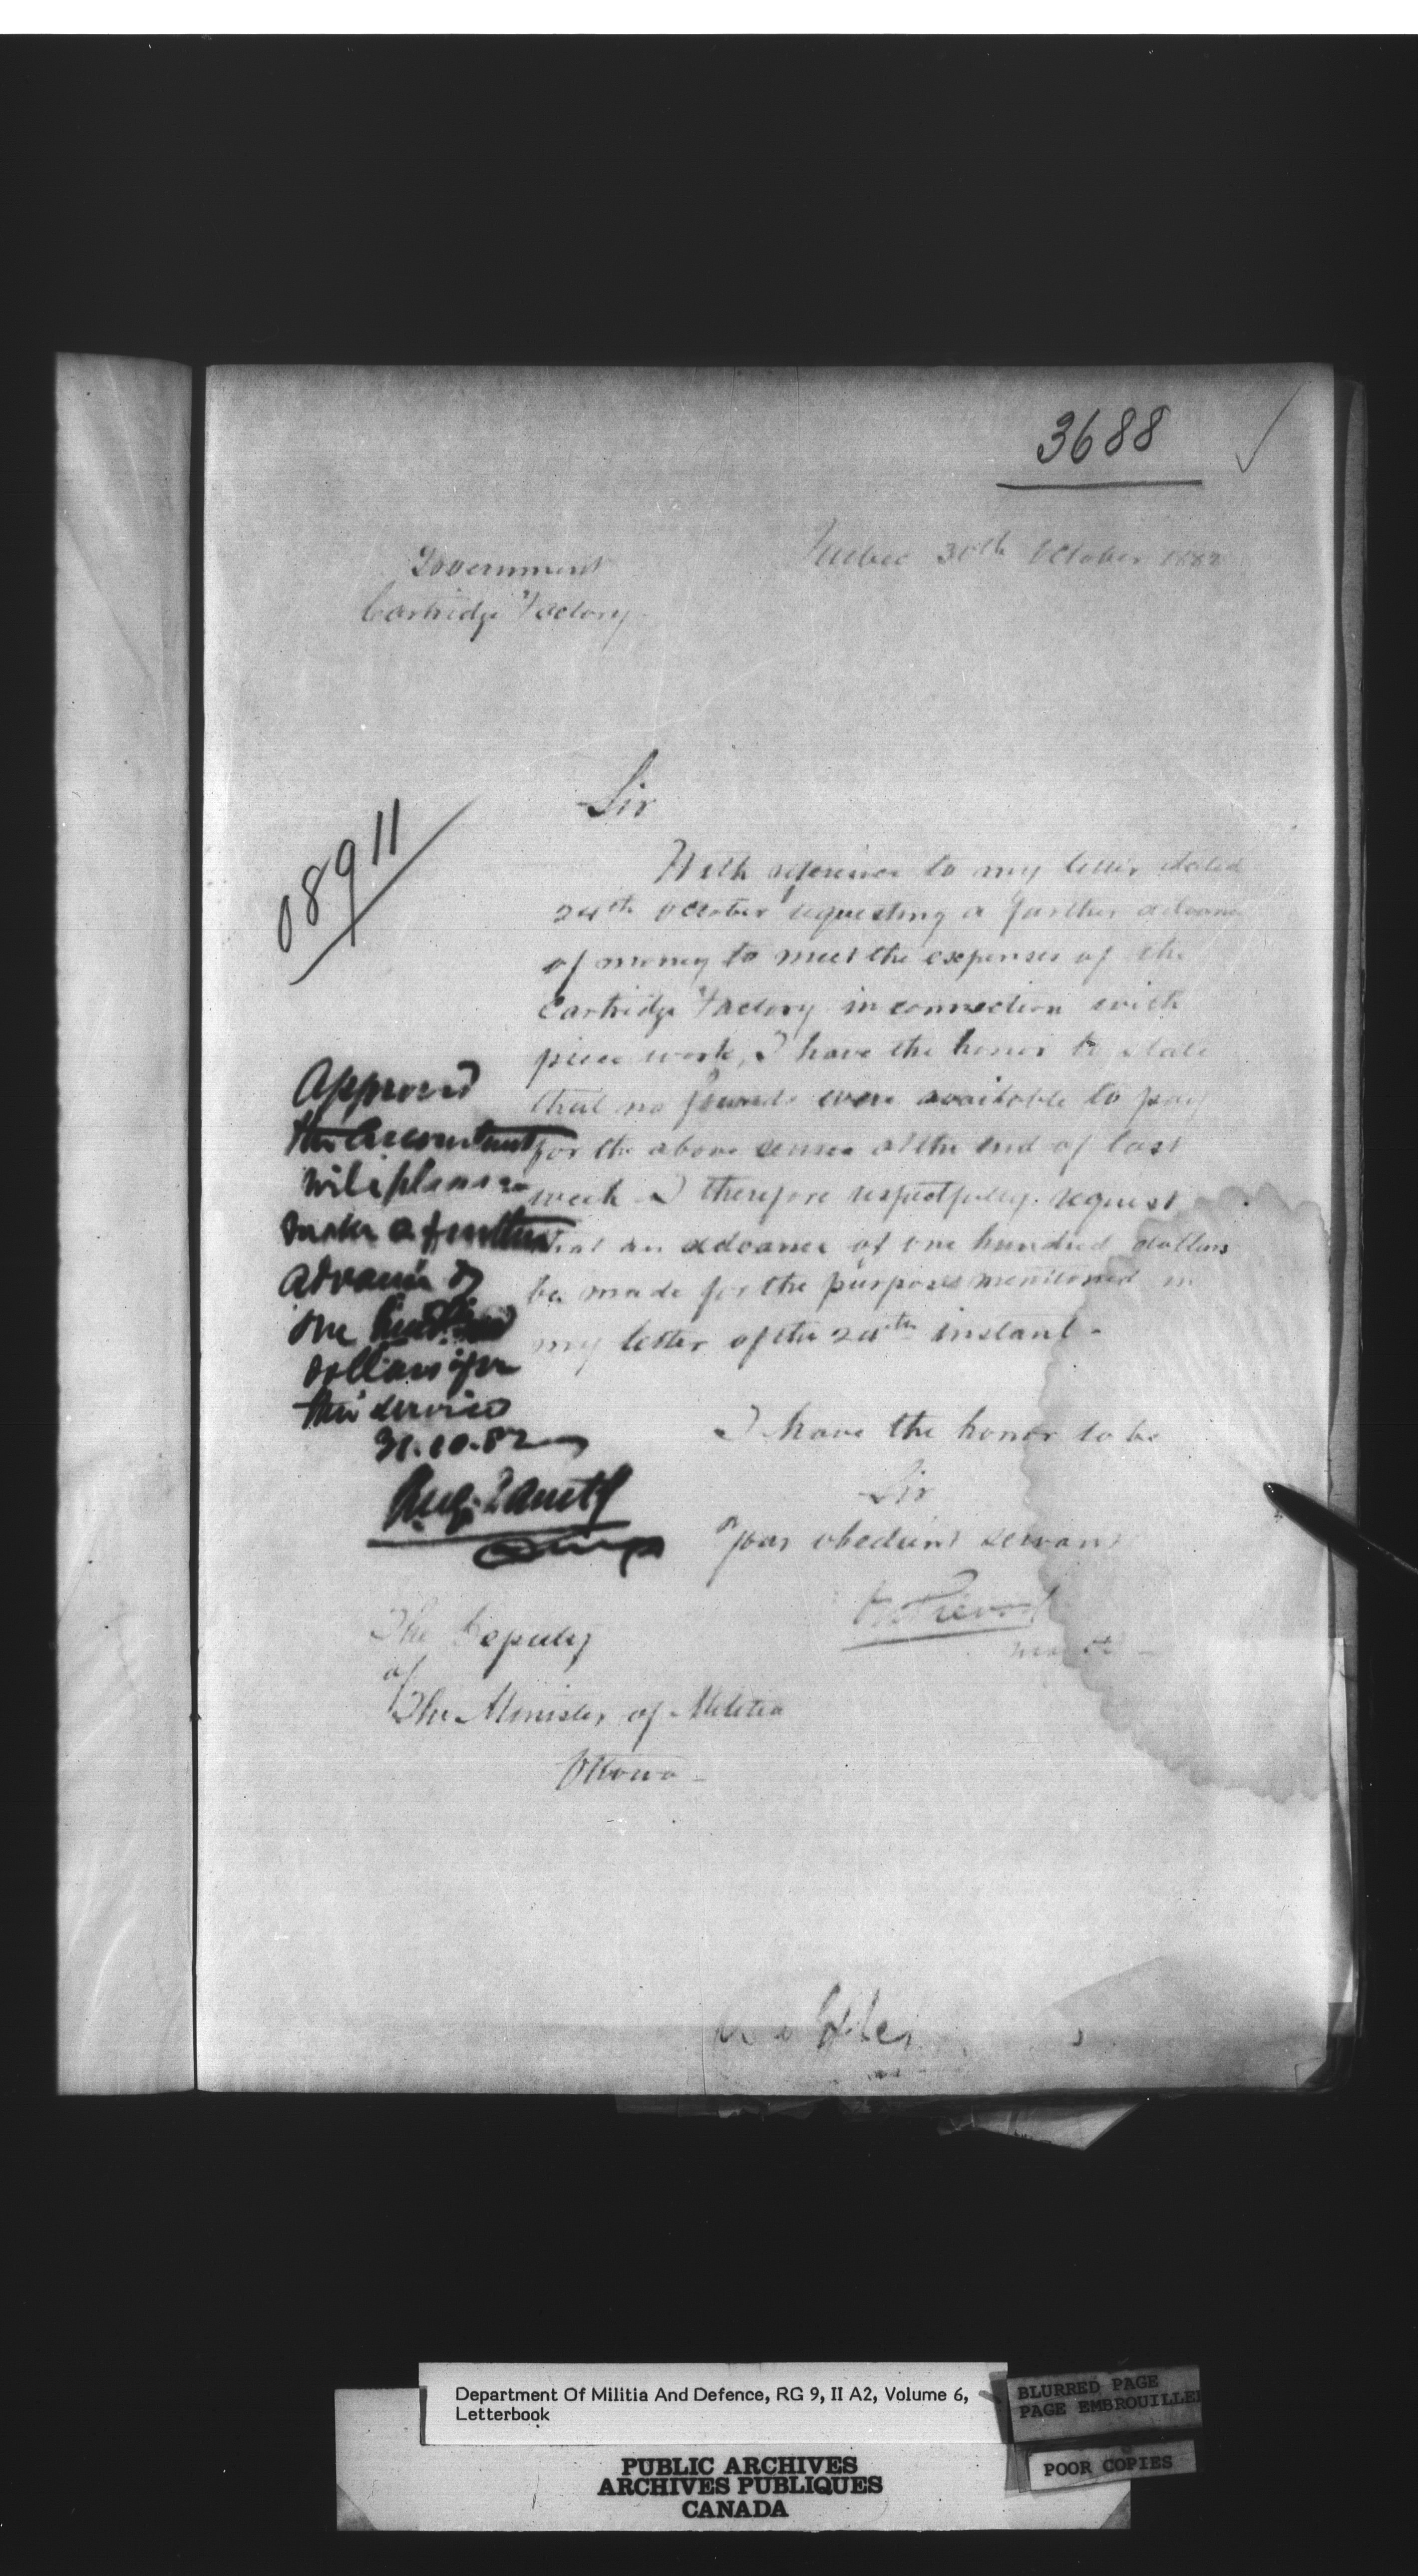 3688
Quebec 30th October 1882
Government
Cartridge Factory
Sir
08911
With reference to my letter dated
24th October requesting a further advance
of money to meet the expenses of the
Cartridge Factory in connection with
piece work, I have the honor to state
that no founds were available to pay
for the above service at the end of last
week I therefore respectfully request
that an advance of one hundred dollars
be made for the purposes mentioned in
my letter of the 24th instant -
Approved
the Accountant
will please
make a further
advance of
one hundred
dollars for
this service
31.10.82
I have the honor to be
Sir
Your obedient servant
OPrevost
The Deputy
of
The Minister of Militia
Ottawa -
Department Of Militia And Defence, RG 9, II A2, Volume 6,
Letterbook
BLURRED PAGE
PAGE EMBROUILLE
POOR COPIES
PUBLIC ARCHIVES
ARCHIVES PUBLIQUES
CANADA